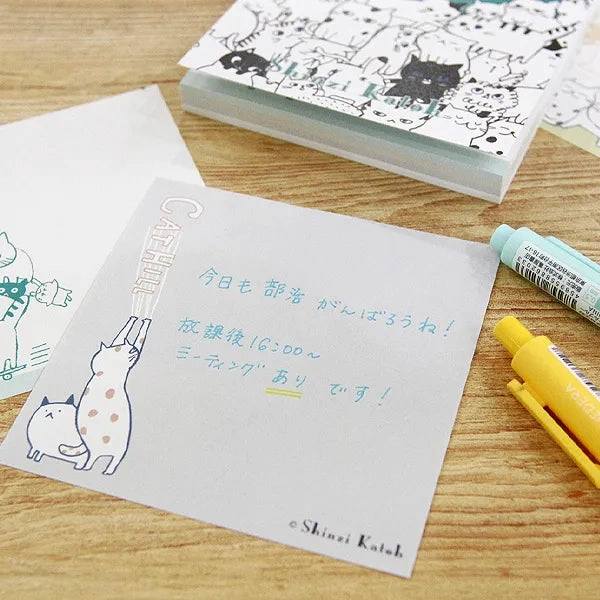 Shinzi Katoh
CAT HILL
今日も 部活 がんばろうね!
放課後16:00〜
ミーティング あり です!
© Shinzi Katoh